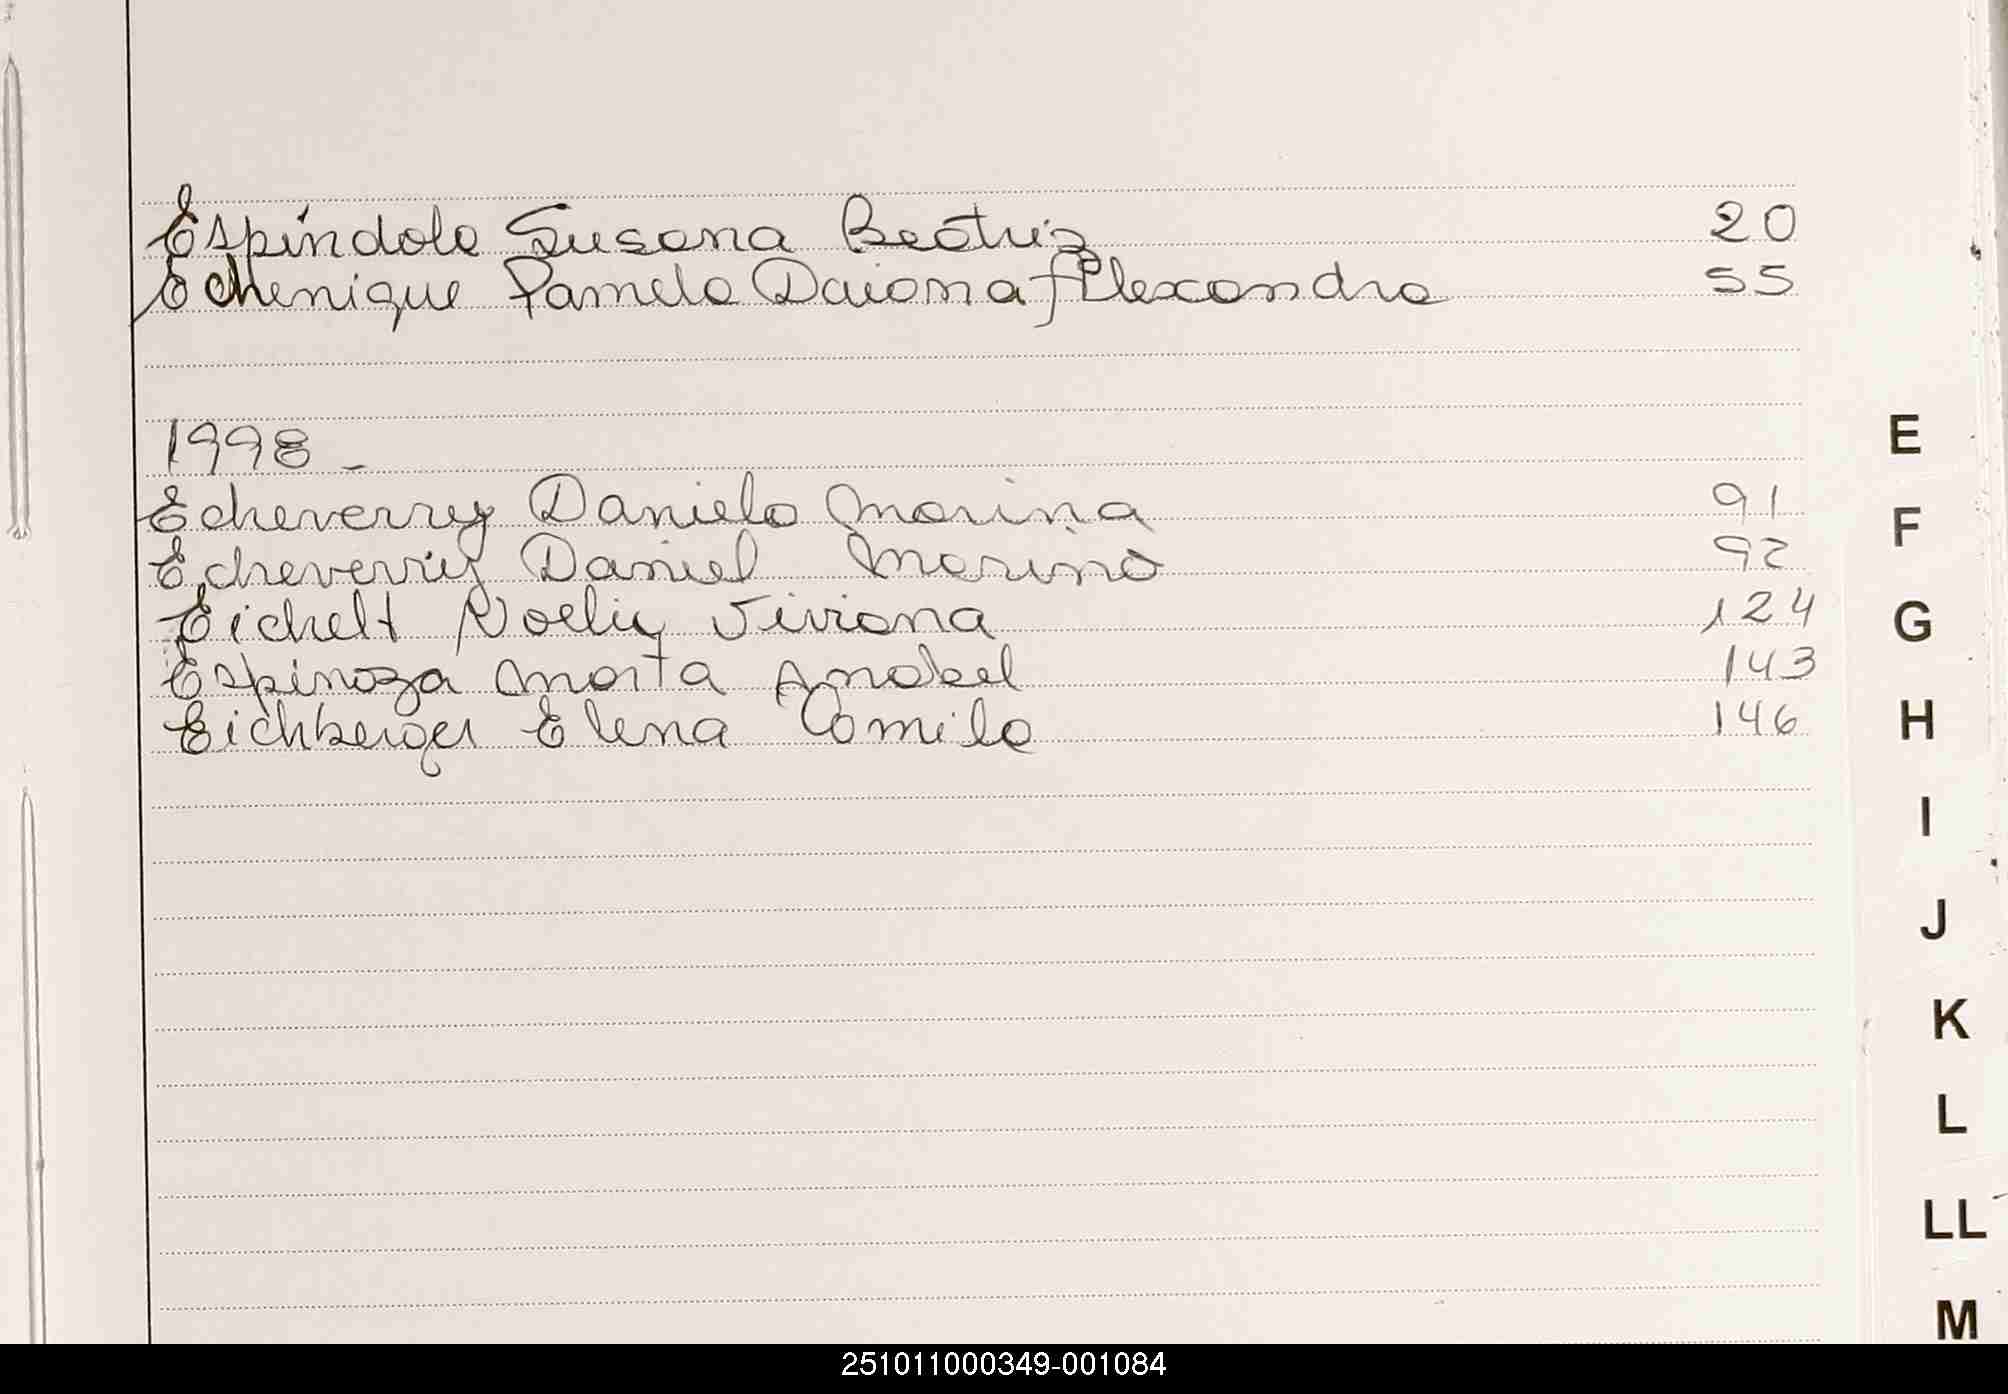 Espíndola Susana Beatriz 20
Echenique Pamela Daiana Alexandra 55
1998 -
Echeverry Daniela Marina 91
Echeverry Daniel Marino 92
Eichelt Noelia Viviana 124
Espinoza Marta Anabel 143
Eichberger Elena Camila 146
E
F
G
H
I
J
K
L
LL
M
251011000349-001084